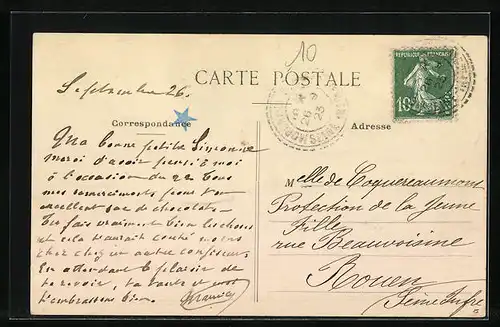 10
Septembre 26.
CARTE POSTALE
REPUBLIQUE FRANÇAISE
10c
Correspondance
Adresse
Ma bonne petite Simonne
merci d'avoir pensé à moi
à l'occasion du 22. Tous
mes remerciements pour ton
excellent sac de chocolats.
Tu fais vraiment bien les choses
et cela t'aurait couté moins
cher chez un autre confiseur.
En attendant le plaisir de
te revoir, ta tante et moi
t'embrassons bien.
Melle de Coquereaumont
Protection de la Jeune
Fille
rue Beauvoisine
Rouen
Seine Infre